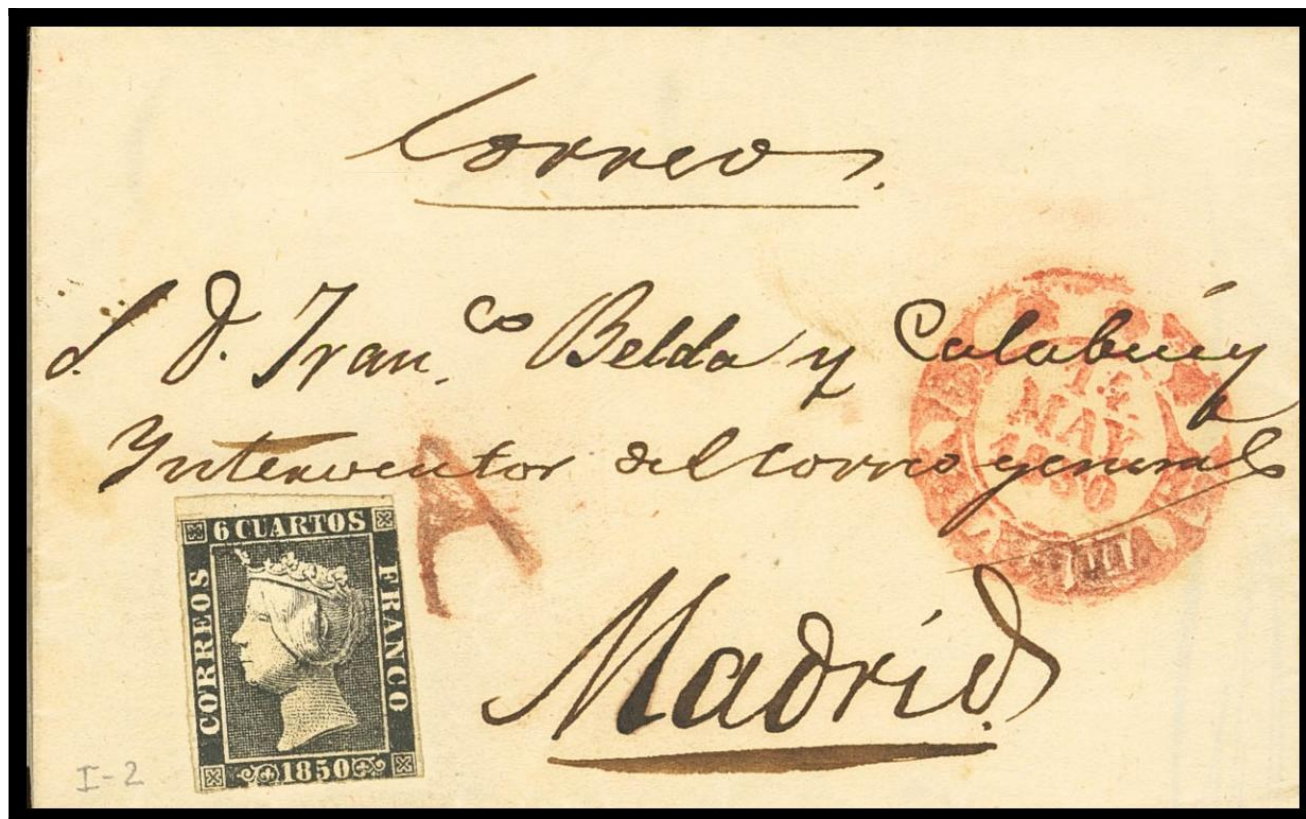 Correo.
S. D. Fran.co Belda y Calabuig
Ynterventor del correo general
A
14
MAY
1850
6 CUARTOS
CORREOS
FRANCO
1850
Madrid.
I-2